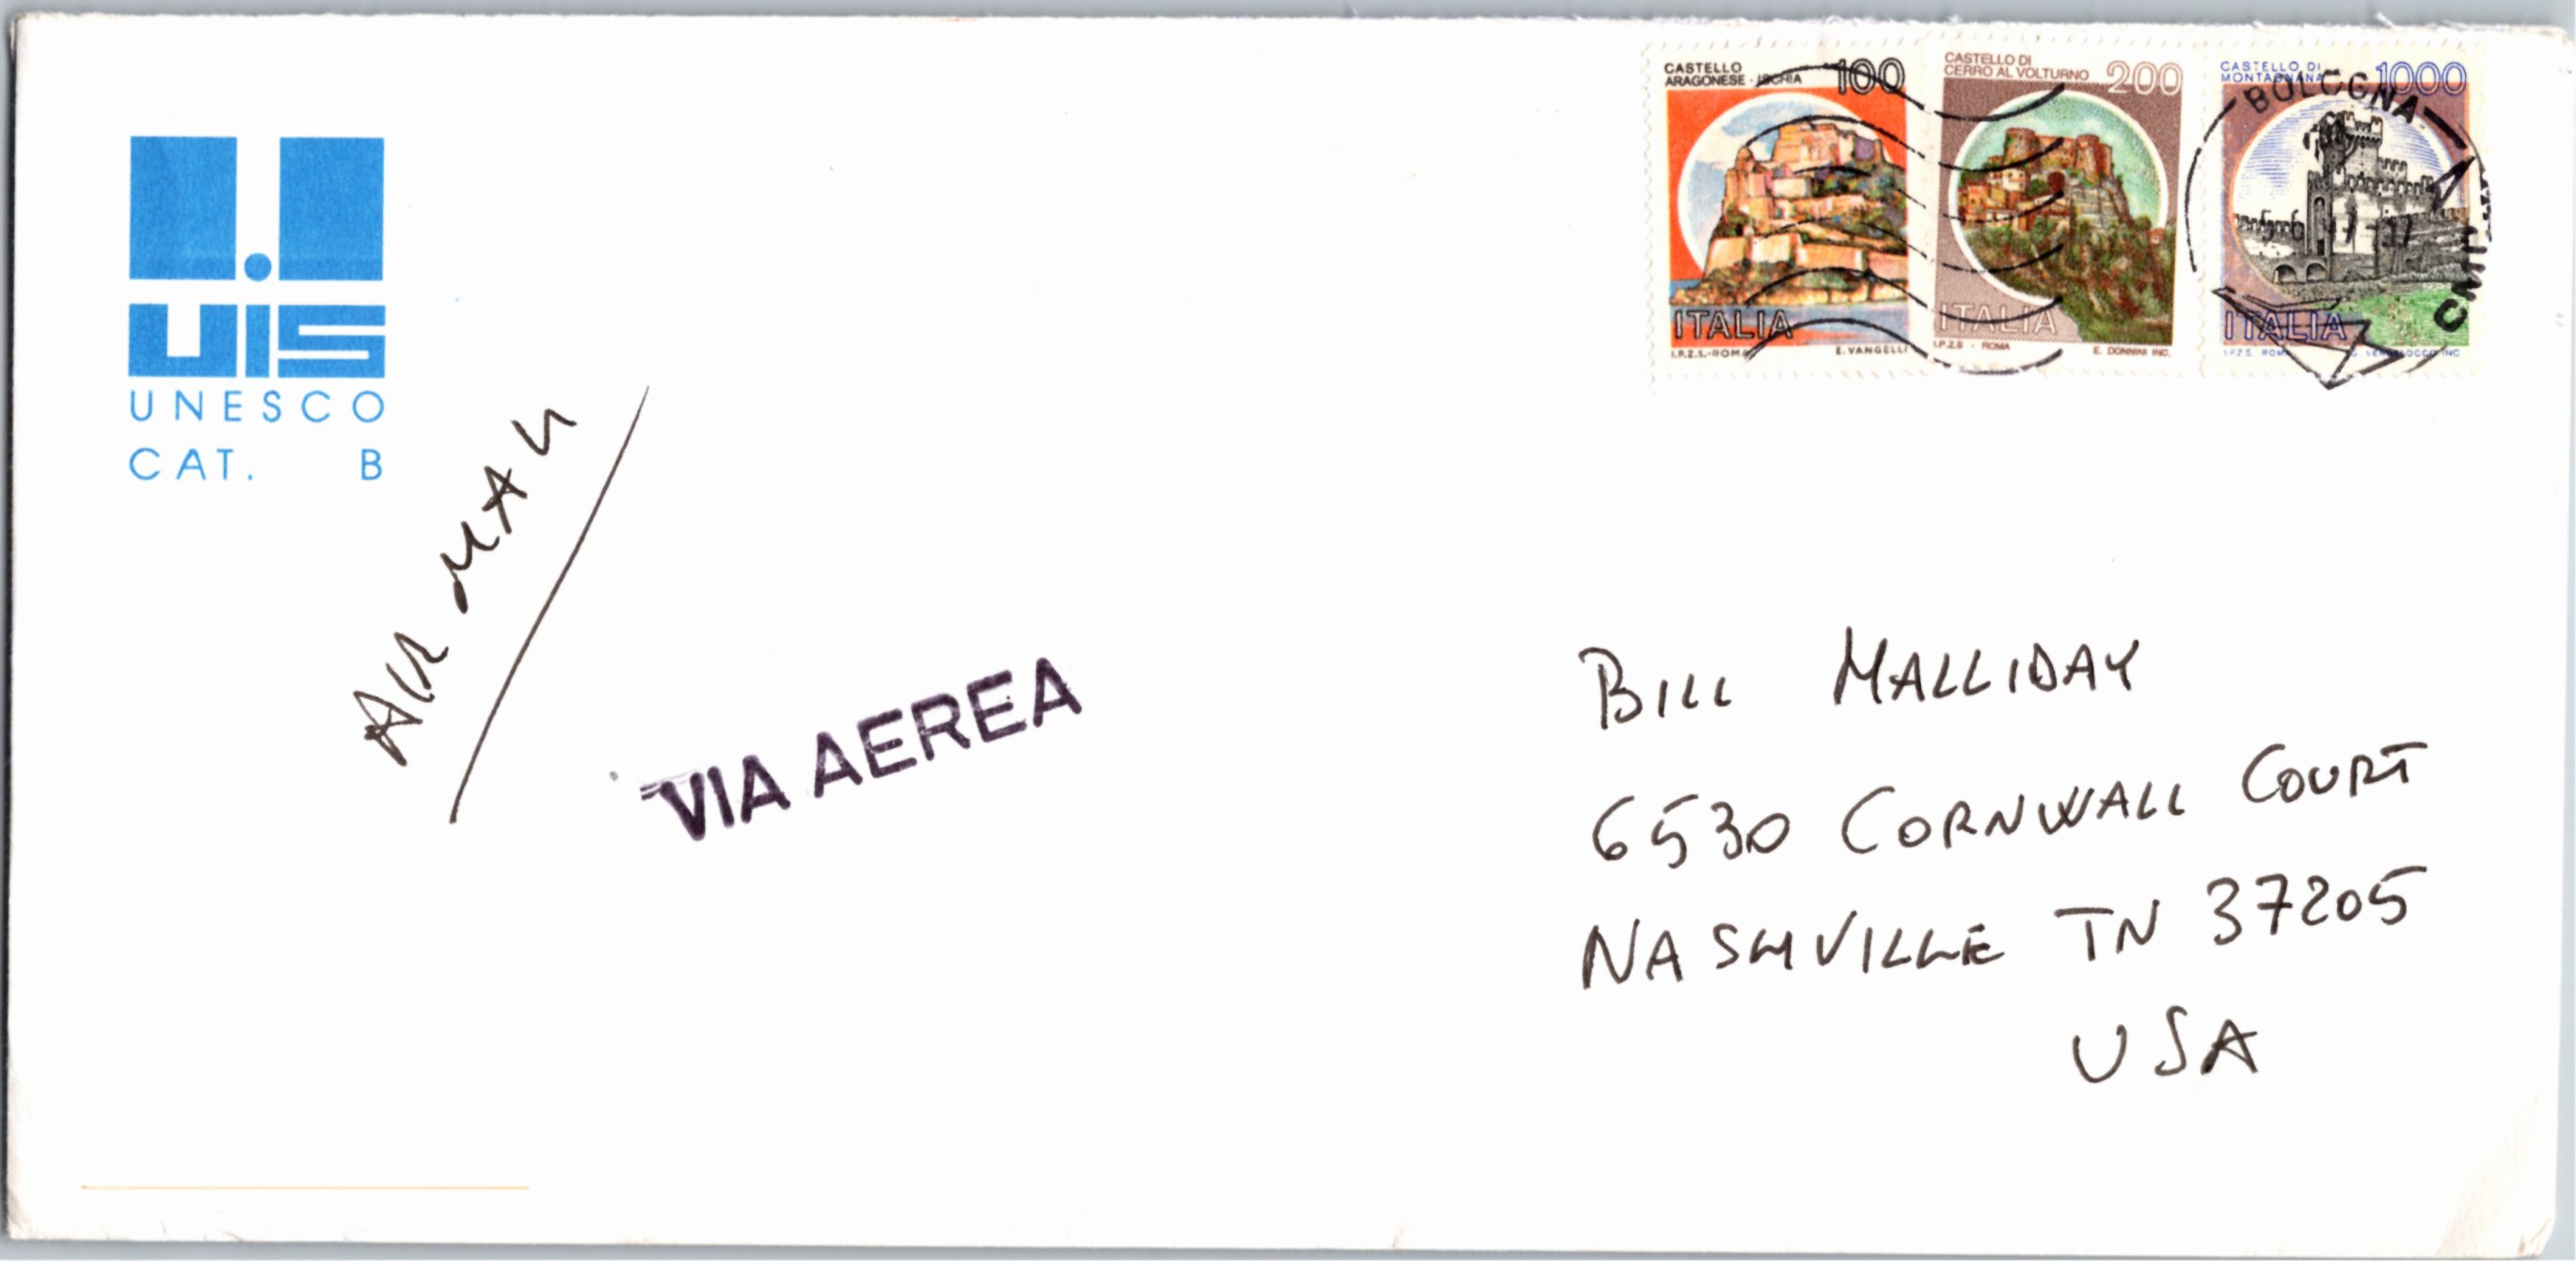 UIS
UNESCO
CAT. B
AIR MAIL
VIA AEREA
CASTELLO
ARAGONESE - ISCHIA 100
ITALIA
I.P.Z.S.-ROMA E. VANGELLI
CASTELLO DI
CERRO AL VOLTURNO 200
ITALIA
I.P.Z.S - ROMA E. DONNINI INC.
CASTELLO DI
MONTAGNANA 1000
ITALIA
I.P.Z.S. ROMA
BOLOGNA
BILL HALLIDAY
6530 CORNWALL COURT
NASHVILLE TN 37205
USA